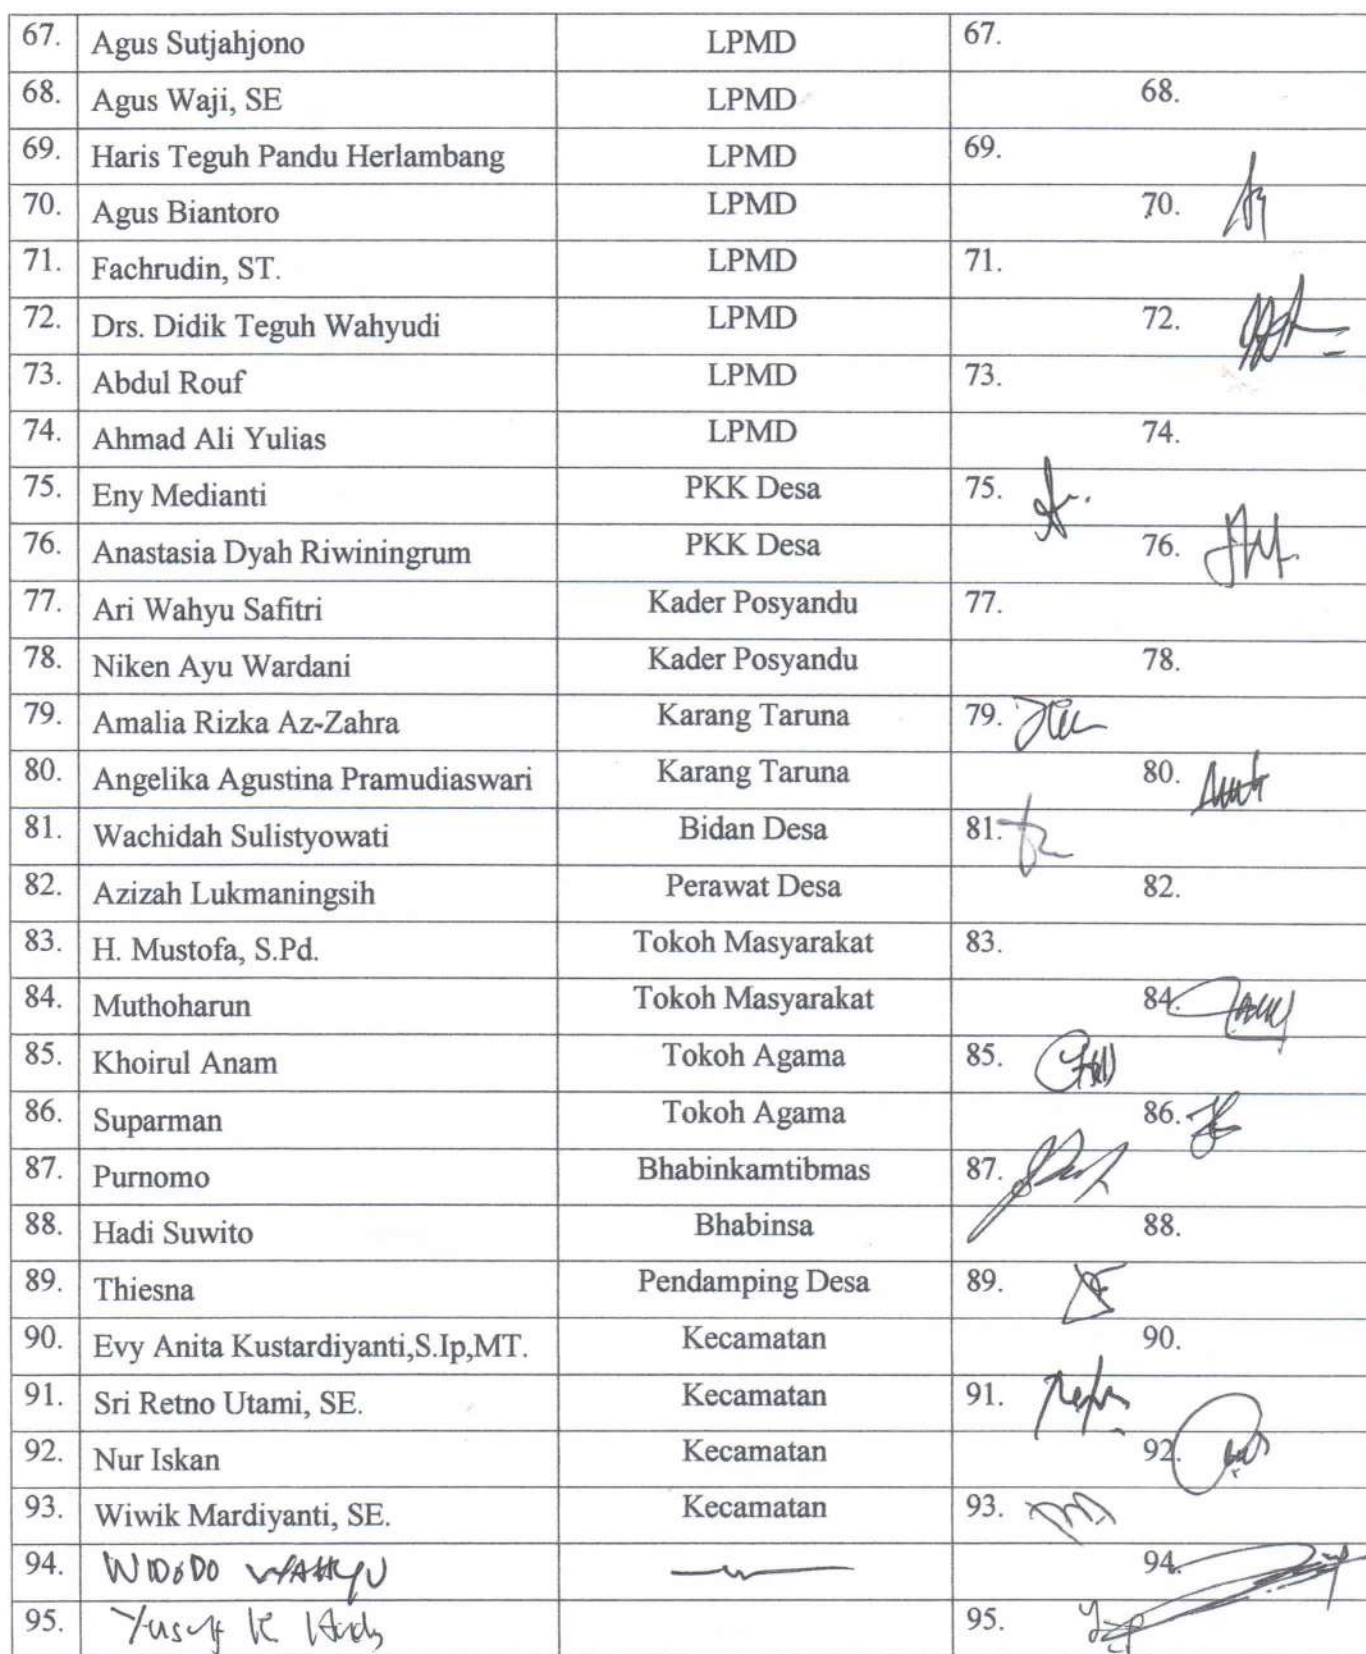 67. Agus Sutjahjono LPMD 67.
68. Agus Waji, SE LPMD 68.
69. Haris Teguh Pandu Herlambang LPMD 69.
70. Agus Biantoro LPMD 70.
71. Fachrudin, ST. LPMD 71.
72. Drs. Didik Teguh Wahyudi LPMD 72.
73. Abdul Rouf LPMD 73.
74. Ahmad Ali Yulias LPMD 74.
75. Eny Medianti PKK Desa 75.
76. Anastasia Dyah Riwiningrum PKK Desa 76.
77. Ari Wahyu Safitri Kader Posyandu 77.
78. Niken Ayu Wardani Kader Posyandu 78.
79. Amalia Rizka Az-Zahra Karang Taruna 79.
80. Angelika Agustina Pramudiaswari Karang Taruna 80.
81. Wachidah Sulistyowati Bidan Desa 81.
82. Azizah Lukmaningsih Perawat Desa 82.
83. H. Mustofa, S.Pd. Tokoh Masyarakat 83.
84. Muthoharun Tokoh Masyarakat 84.
85. Khoirul Anam Tokoh Agama 85.
86. Suparman Tokoh Agama 86.
87. Purnomo Bhabinkamtibmas 87.
88. Hadi Suwito Bhabinsa 88.
89. Thiesna Pendamping Desa 89.
90. Evy Anita Kustardiyanti,S.Ip,MT. Kecamatan 90.
91. Sri Retno Utami, SE. Kecamatan 91.
92. Nur Iskan Kecamatan 92.
93. Wiwik Mardiyanti, SE. Kecamatan 93.
94. WIDODO WAHYU 94.
95. Yusuf K 95.